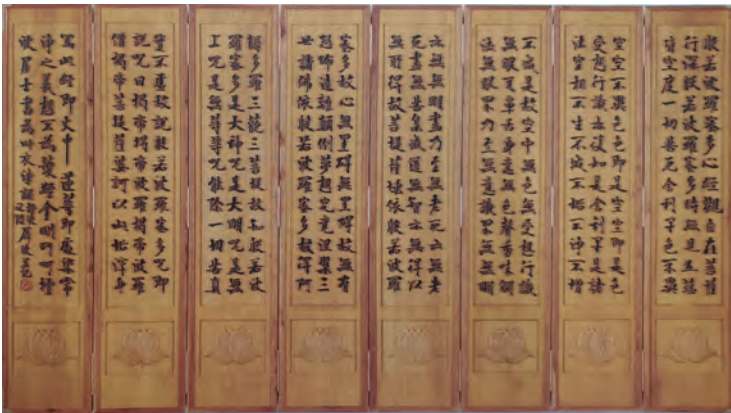 般若波羅蜜多心經觀自在菩薩
行深般若波羅蜜多時照見五蘊
皆空度一切苦厄舍利子色不異
空空不異色色即是空空即是色
受想行識亦復如是舍利子是諸
法空相不生不滅不垢不淨不增
不減是故空中無色無受想行識
無眼耳鼻舌身意無色聲香味觸
法無眼界乃至無意識界無無明
亦無無明盡乃至無老死亦無老
死盡無苦集滅道無智亦無得以
無所得故菩提薩埵依般若波羅
蜜多故心無罣碍無罣碍故無有
恐怖遠離顛倒夢想究竟涅槃三
世諸佛依般若波羅蜜多故得阿
耨多羅三藐三菩提故知般若波
羅蜜多是大神呪是大明呪是無
上呪是無等等呪能除一切苦真
實不虛故說般若波羅蜜多呪即
說呪曰揭帝揭帝波羅揭帝波羅
僧揭帝菩提薩婆訶以此淨身
寫此經即火中蓮華即處染常
淨之義
居士書為